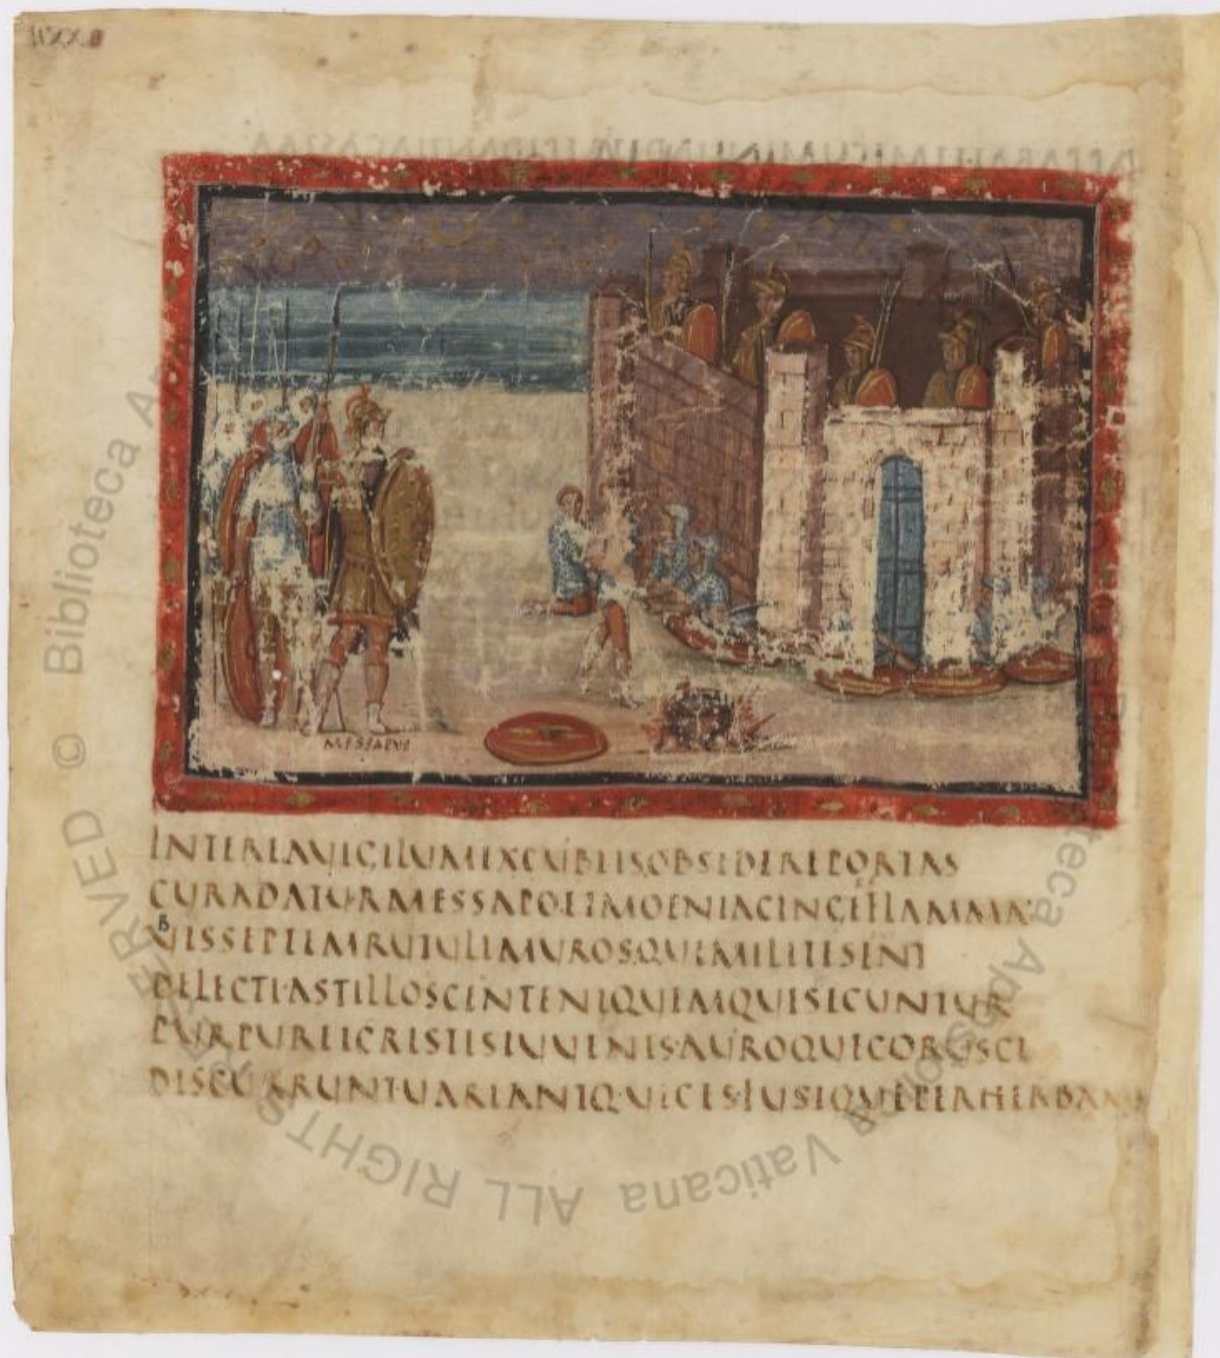 MESSAPVS
INTEREAVIGILVMEXCVBIISOBSIDEREPORTAS
CVRADATVRMESSAPOETMOENIACINGEREFLAMMA
VISSEPTEMRVTVLIMVROSQVEMILITESENT
DELECTIASTILLOSCENTENIQVEMQVESECVNTVR
PVRPVREICRISTISIVVENESAVROQVECORVSCI
DISCVRRVNTVARIANTQ·VICES·FVSIQVEPERHERBAM
© Biblioteca Apostolica Vaticana ALL RIGHTS RESERVED